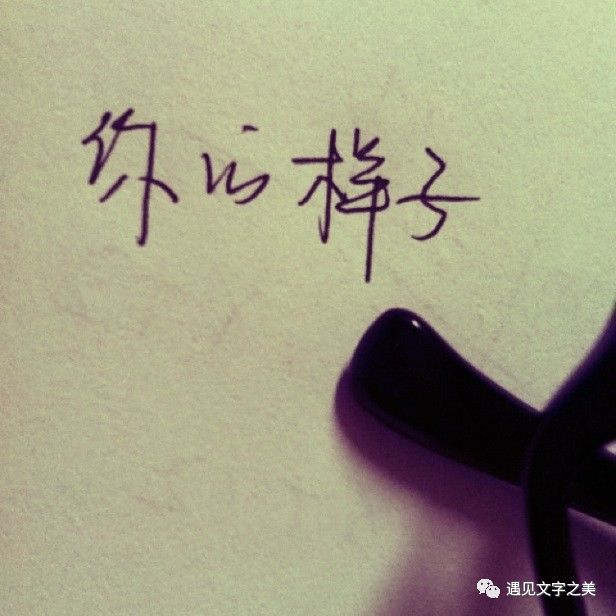 你的样子
遇见文字之美